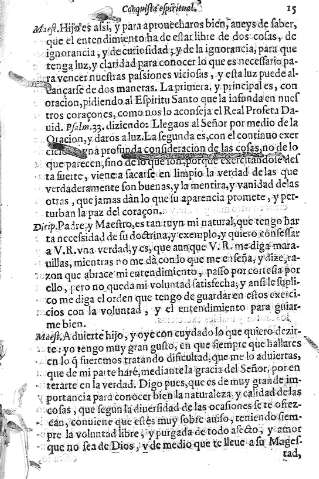 Conquista espiritual. 15
Maest. Hijo es assi, y para aprouecharos bien, aueys de saber,
que el entendimiento ha de estar libre de dos cosas, de
ignorancia, y de curiosidad; y de la ignorancia, para que
tenga luz, y claridad para conocer lo que es necessario pa-
ra vencer nuestras passiones viciosas, y esta luz puede al-
cançarse de dos maneras. La primera, y principal es, con
oracion, pidiendo al Espiritu Santo que la infunda en nues
tros coraçones, como nos lo aconseja el Real Profeta Da-
uid. Psalm. 33. diziendo: Llegaos al Señor por medio de la
Oracion, y daros a luz. La segunda es, con el continuo exer
cicio una profunda consideracion de las cosas, no de lo
que parecen, sino de lo que son, porque exercitandose des
ta suerte, viene a sacarse en limpio la verdad de las que
verdaderamente son buenas, y la mentira, y vanidad de las
otras, que jamas dàn lo que su aparencia promete, y per-
turban la paz del coraçon.
Dicip. Padre, y Maestro, es tan ruyn mi natural, que tengo har
ta necessidad de su doctrina, y exemplo, y quiero confessar
a V. R. vna verdad, y es, que aunque V. R. me diga mara-
uillas, mientras no me dà con lo que me enseña, y dize, ra-
zon que abrace mi entendimiento, passo por cortesia por
ello, pero no queda mi voluntad satisfecha; y ansi le supli-
co me diga el orden que tengo de guardar en estos exerci-
cios con la voluntad, y el entendimiento para guiar-
me bien.
Maest. Aduierte hijo, y oye con cuydado lo que quiero dezir-
te: yo tengo muy gran gusto, en que siempre que hallares
en lo q̃ fueremos tratando dificultad, que me lo aduiertas,
que de mi parte harè, mediante la gracia del Señor, por en
terarte en la verdad. Digo pues, que es de muy grande im-
portancia para conocer bien la naturaleza, y calidad de las
cosas, que segun la diuersidad de las ocasiones se te ofrez-
can, conuiene que estès muy sobre auiso, teniendo siem-
pre la voluntad libre, y purgada de todo afecto, y amor
que no sea de Dios, y de medio que te lleue a su Mages-
tad,